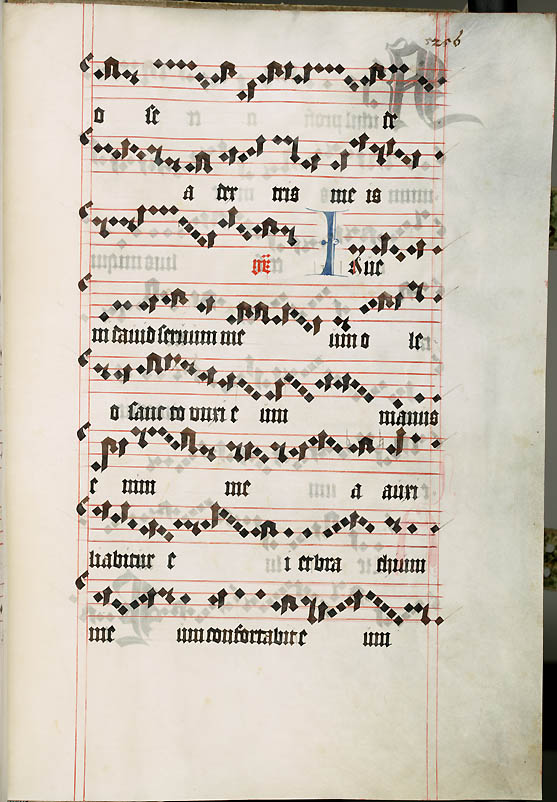 5256
o se de
a dex tris me is
INue
ni dauid seruum me um o le
o sanc to vnxi e um manus
e nim me a auxi
liabitur e i et bra chium
me um confortabit e um